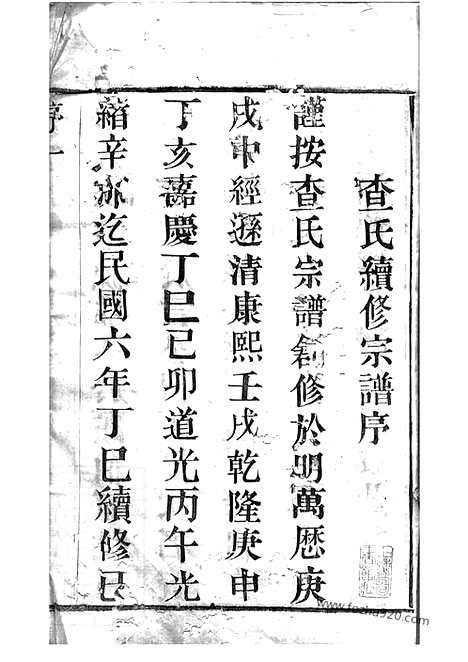 查氏續修宗譜序
謹按查氏宗譜創修於明萬歷庚
戌中經遜清康熙壬戌乾隆庚申
丁亥嘉慶丁巳己卯道光丙午光
緒辛亦迄民國六年丁巳續修已
序一
www.fozhu920.com